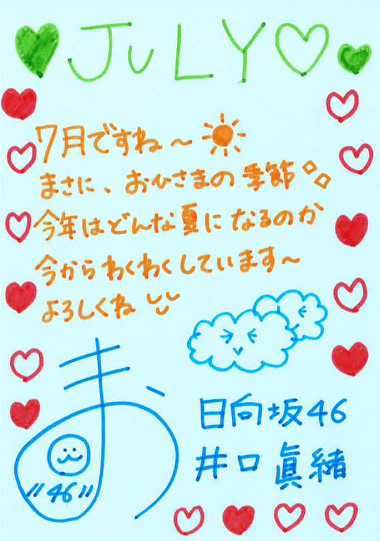 JULY♡
7月ですね〜
まさに、おひさまの季節
今年はどんな夏になるのか
今からわくわくしています〜
よろしくね
日向坂46
井口眞緒
お
"46"